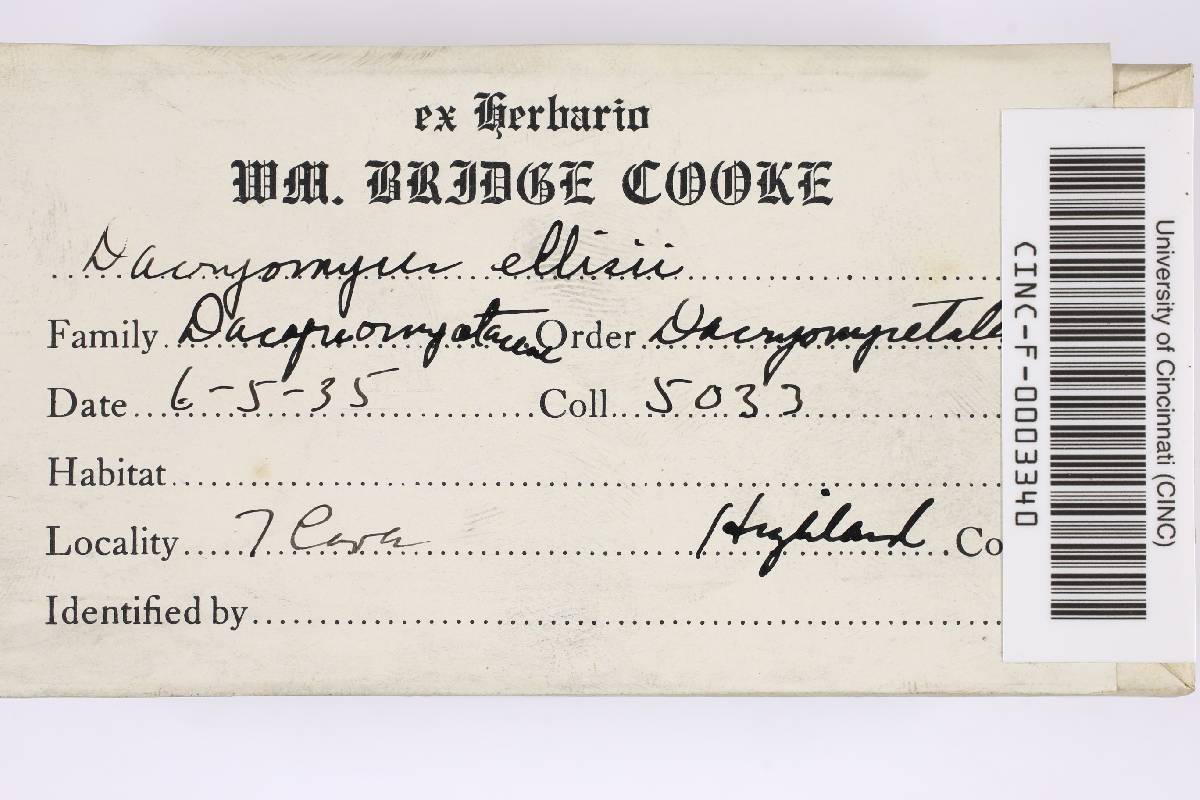 ex Herbario
WM. BRIDGE COOKE
Dacryomyces ellisii
Family Dacryomycetaceae Order Dacryomycetale
Date 6-5-35 Coll 5033
Habitat
Locality 7 Cave Highland Co
Identified by
University of Cincinnati (CINC)
CINC-F-0003340